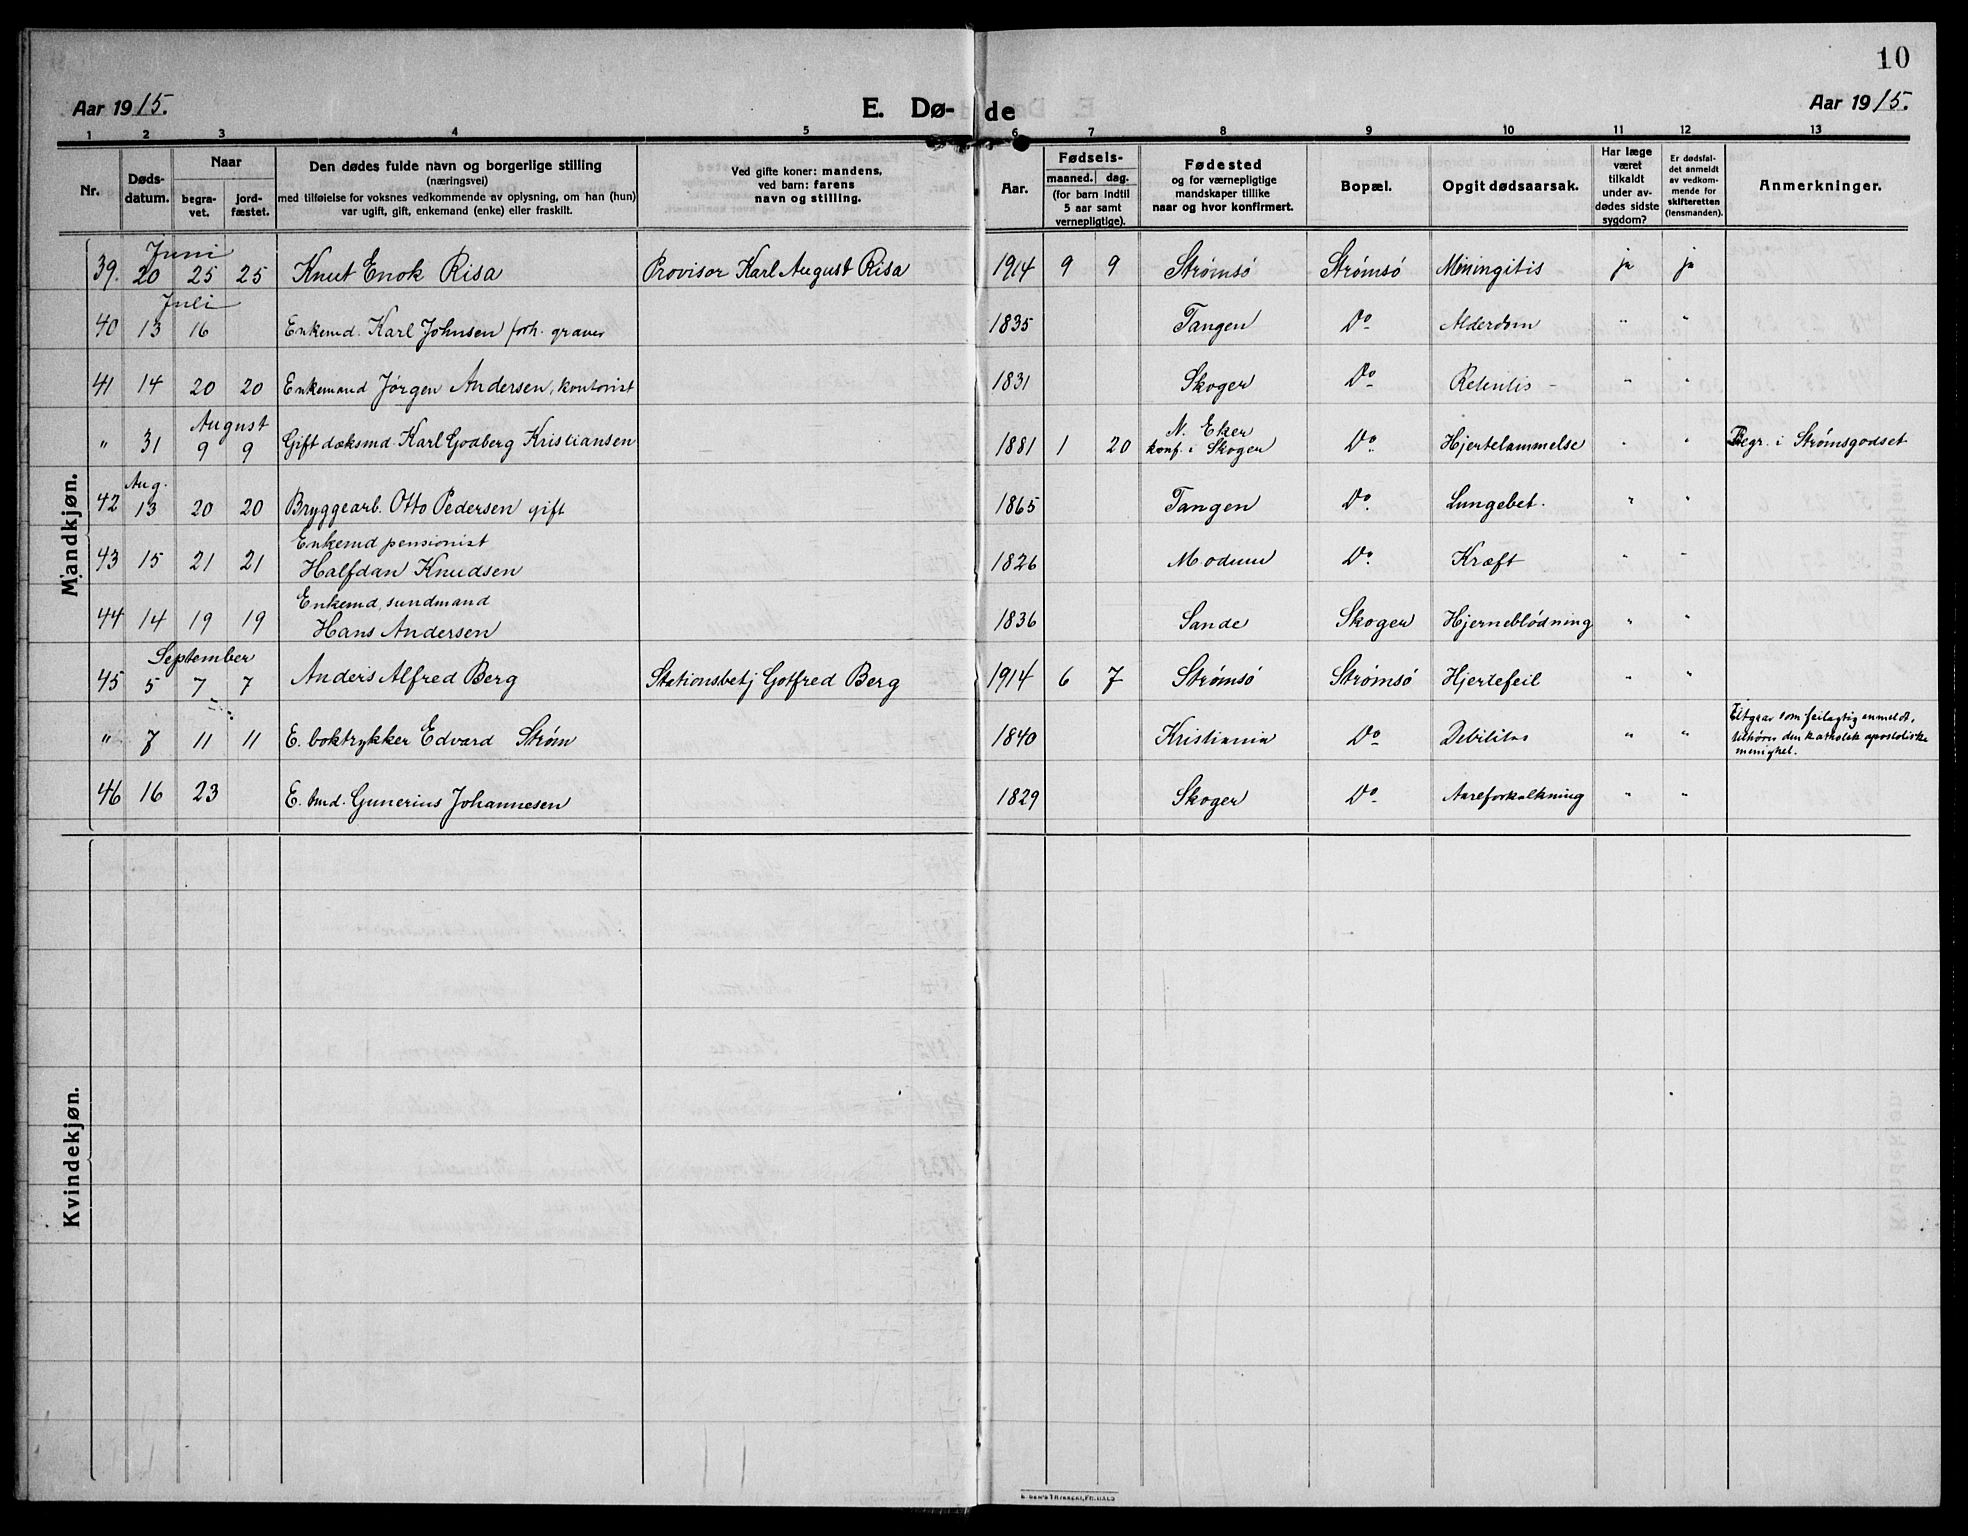 10
Aar 1915. E. Dø- de Aar 1915.
1 2 3 4 5 6 7 8 9 10 11 12 13
Nr.
Døds-
datum.
Naar
begra-
vet.
jord-
fæstet.
Den dødes fulde navn og borgerlige stilling
(næringsvei)
med tilføielse for voksnes vedkommende av oplysning, om han (hun)
var ugift, gift, enkemand (enke) eller fraskilt.
Ved gifte koner: mandens,
ved barn: farens
navn og stilling.
Aar.
Fødsels-
maaned. dag.
(for barn indtil
5 aar samt
vernepligtige).
Fødested
og for værnepligtige
mandskaper tillike
naar og hvor konfirmert.
Bopæl.
Opgit dødsaarsak.
Har læge
været
tilkaldt
under av-
dødes sidste
sygdom?
Er dødsfal-
det anmeldt
av vedkom-
mende for
skifteretten
(lensmanden).
Anmerkninger.
Mandkjøn.
Juni
39. 20 25 25 Knut Enok Risa Provisor Karl August Risa 1914 9 9 Strømsö Strømsö Miningitis ja ja
Juli
40 13 16 Enkemd. Karl Johnsen forh. graver 1835 Tangen Do Alderdom " "
41 14 20 20 Enkemand Jørgen Andersen, kontorist 1831 Skoger Do Retentis - " "
August N. Eker
" 31 9 9 Gift dæksmd. Karl Godberg Kristiansen 1881 1 20 konf. i Skoger Do Hjertelammelse " " Begr. i Strømsgodset
Aug.
42 13 20 20 Bryggearb. Otto Pedersen gift 1865 Tangen Do Lungebet. " "
Enkemd pensionist
43 15 21 21 Halfdan Knudsen 1826 Modum Do Kræft " "
Enkemd, sundmand
44 14 19 19 Hans Andersen 1836 Sande Skoger Hjerneblødning " "
September
45 5 7 7 Anders Alfred Berg Stationsbetj Gotfred Berg 1914 6 7 Strømsö Strømsö Hjertefeil " "
" 7 11 11 E. boktrykker Edvard Strøm 1840 Kristiania Do Debilitas " "
Utgaar som feilagtig anmeldt,
tilhører den katholsk apostoliske
menighet.
46 16 23 E. Gunerius Johannesen 1829 Skoger Do Aareforkalkning " "
Kvindekjøn.